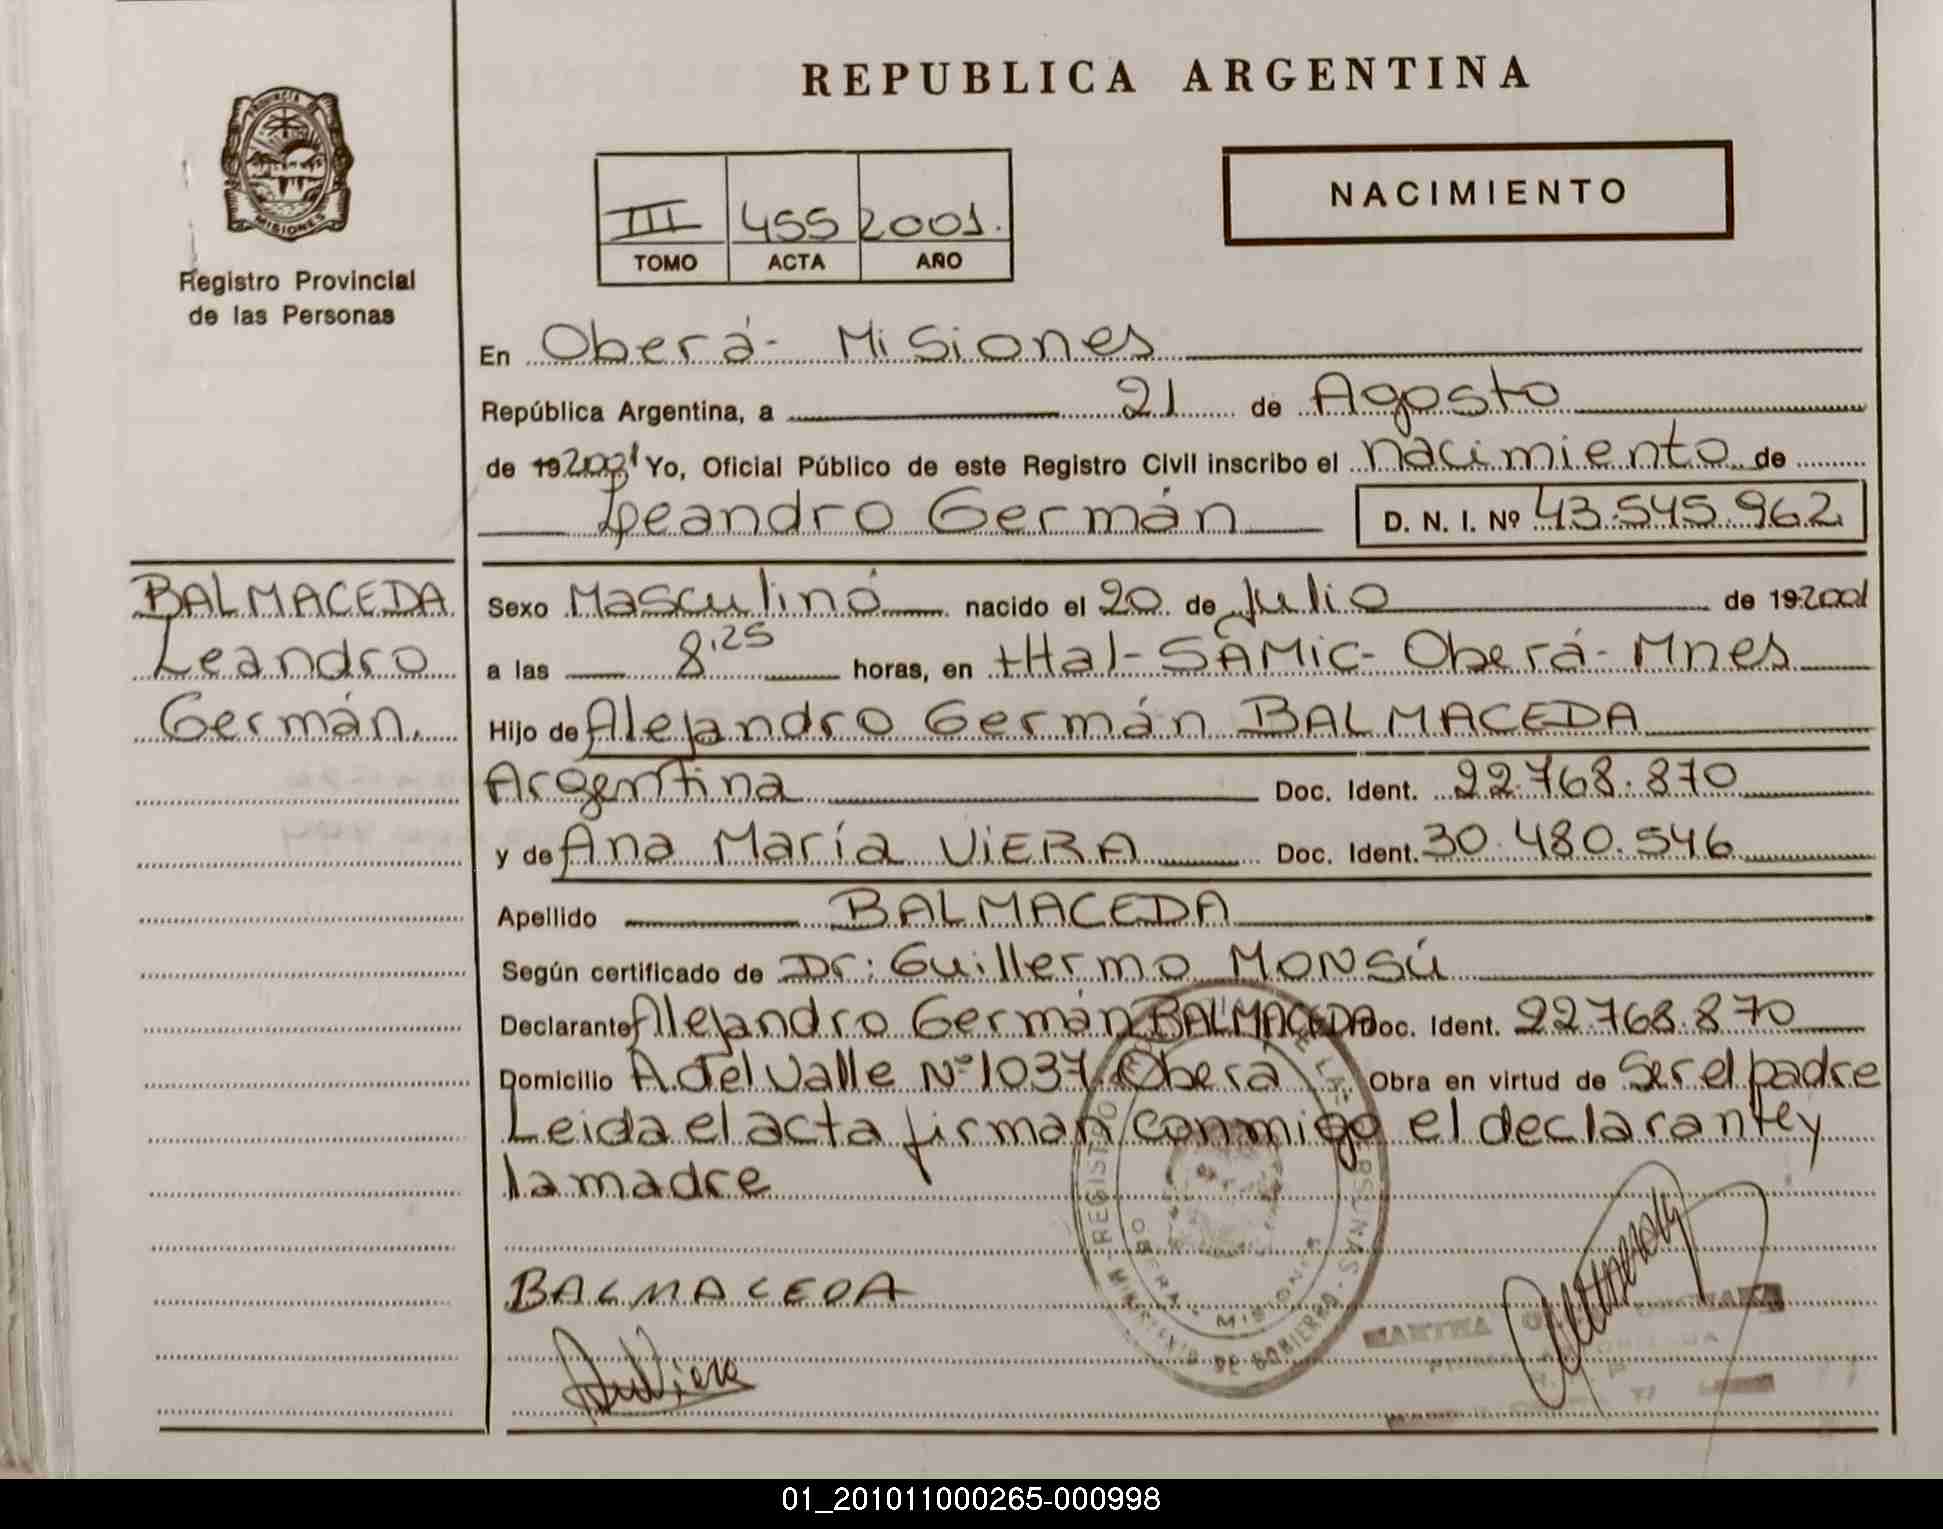 REPUBLICA ARGENTINA
PROVINCIA DE
MISIONES
Registro Provincial
de las Personas
III 455 2001.
TOMO ACTA AÑO
NACIMIENTO
En Oberá - Misiones
República Argentina, a 21 de Agosto
de 19 2001 Yo, Oficial Público de este Registro Civil inscribo el nacimiento de
Leandro Germán D. N. I. Nº 43.545.962
BALMACEDA
Leandro
Germán.
Sexo Masculino nacido el 20 de Julio de 19 2001
a las 8,25 horas, en Htal - SAMic - Oberá - Mnes
Hijo de Alejandro Germán BALMACEDA
Argentina Doc. Ident. 22.768.870
y de Ana María ViERA Doc. Ident. 30.480.546
Apellido BALMACEDA
Según certificado de Dr: Guillermo MONSÚ
Declarante Alejandro Germán BALMACEDA Doc. Ident. 22.768.870
Domicilio A del Valle Nº 1037 Oberá Obra en virtud de Ser el padre
Leida el acta firman conmigo el declarante y
la madre
BALMACEDA
Viera
REGISTRO DE LAS PERSONAS - MINISTERIO DE GOBIERNO -
OBERA - MISIONES
MARTHA
01_201011000265-000998